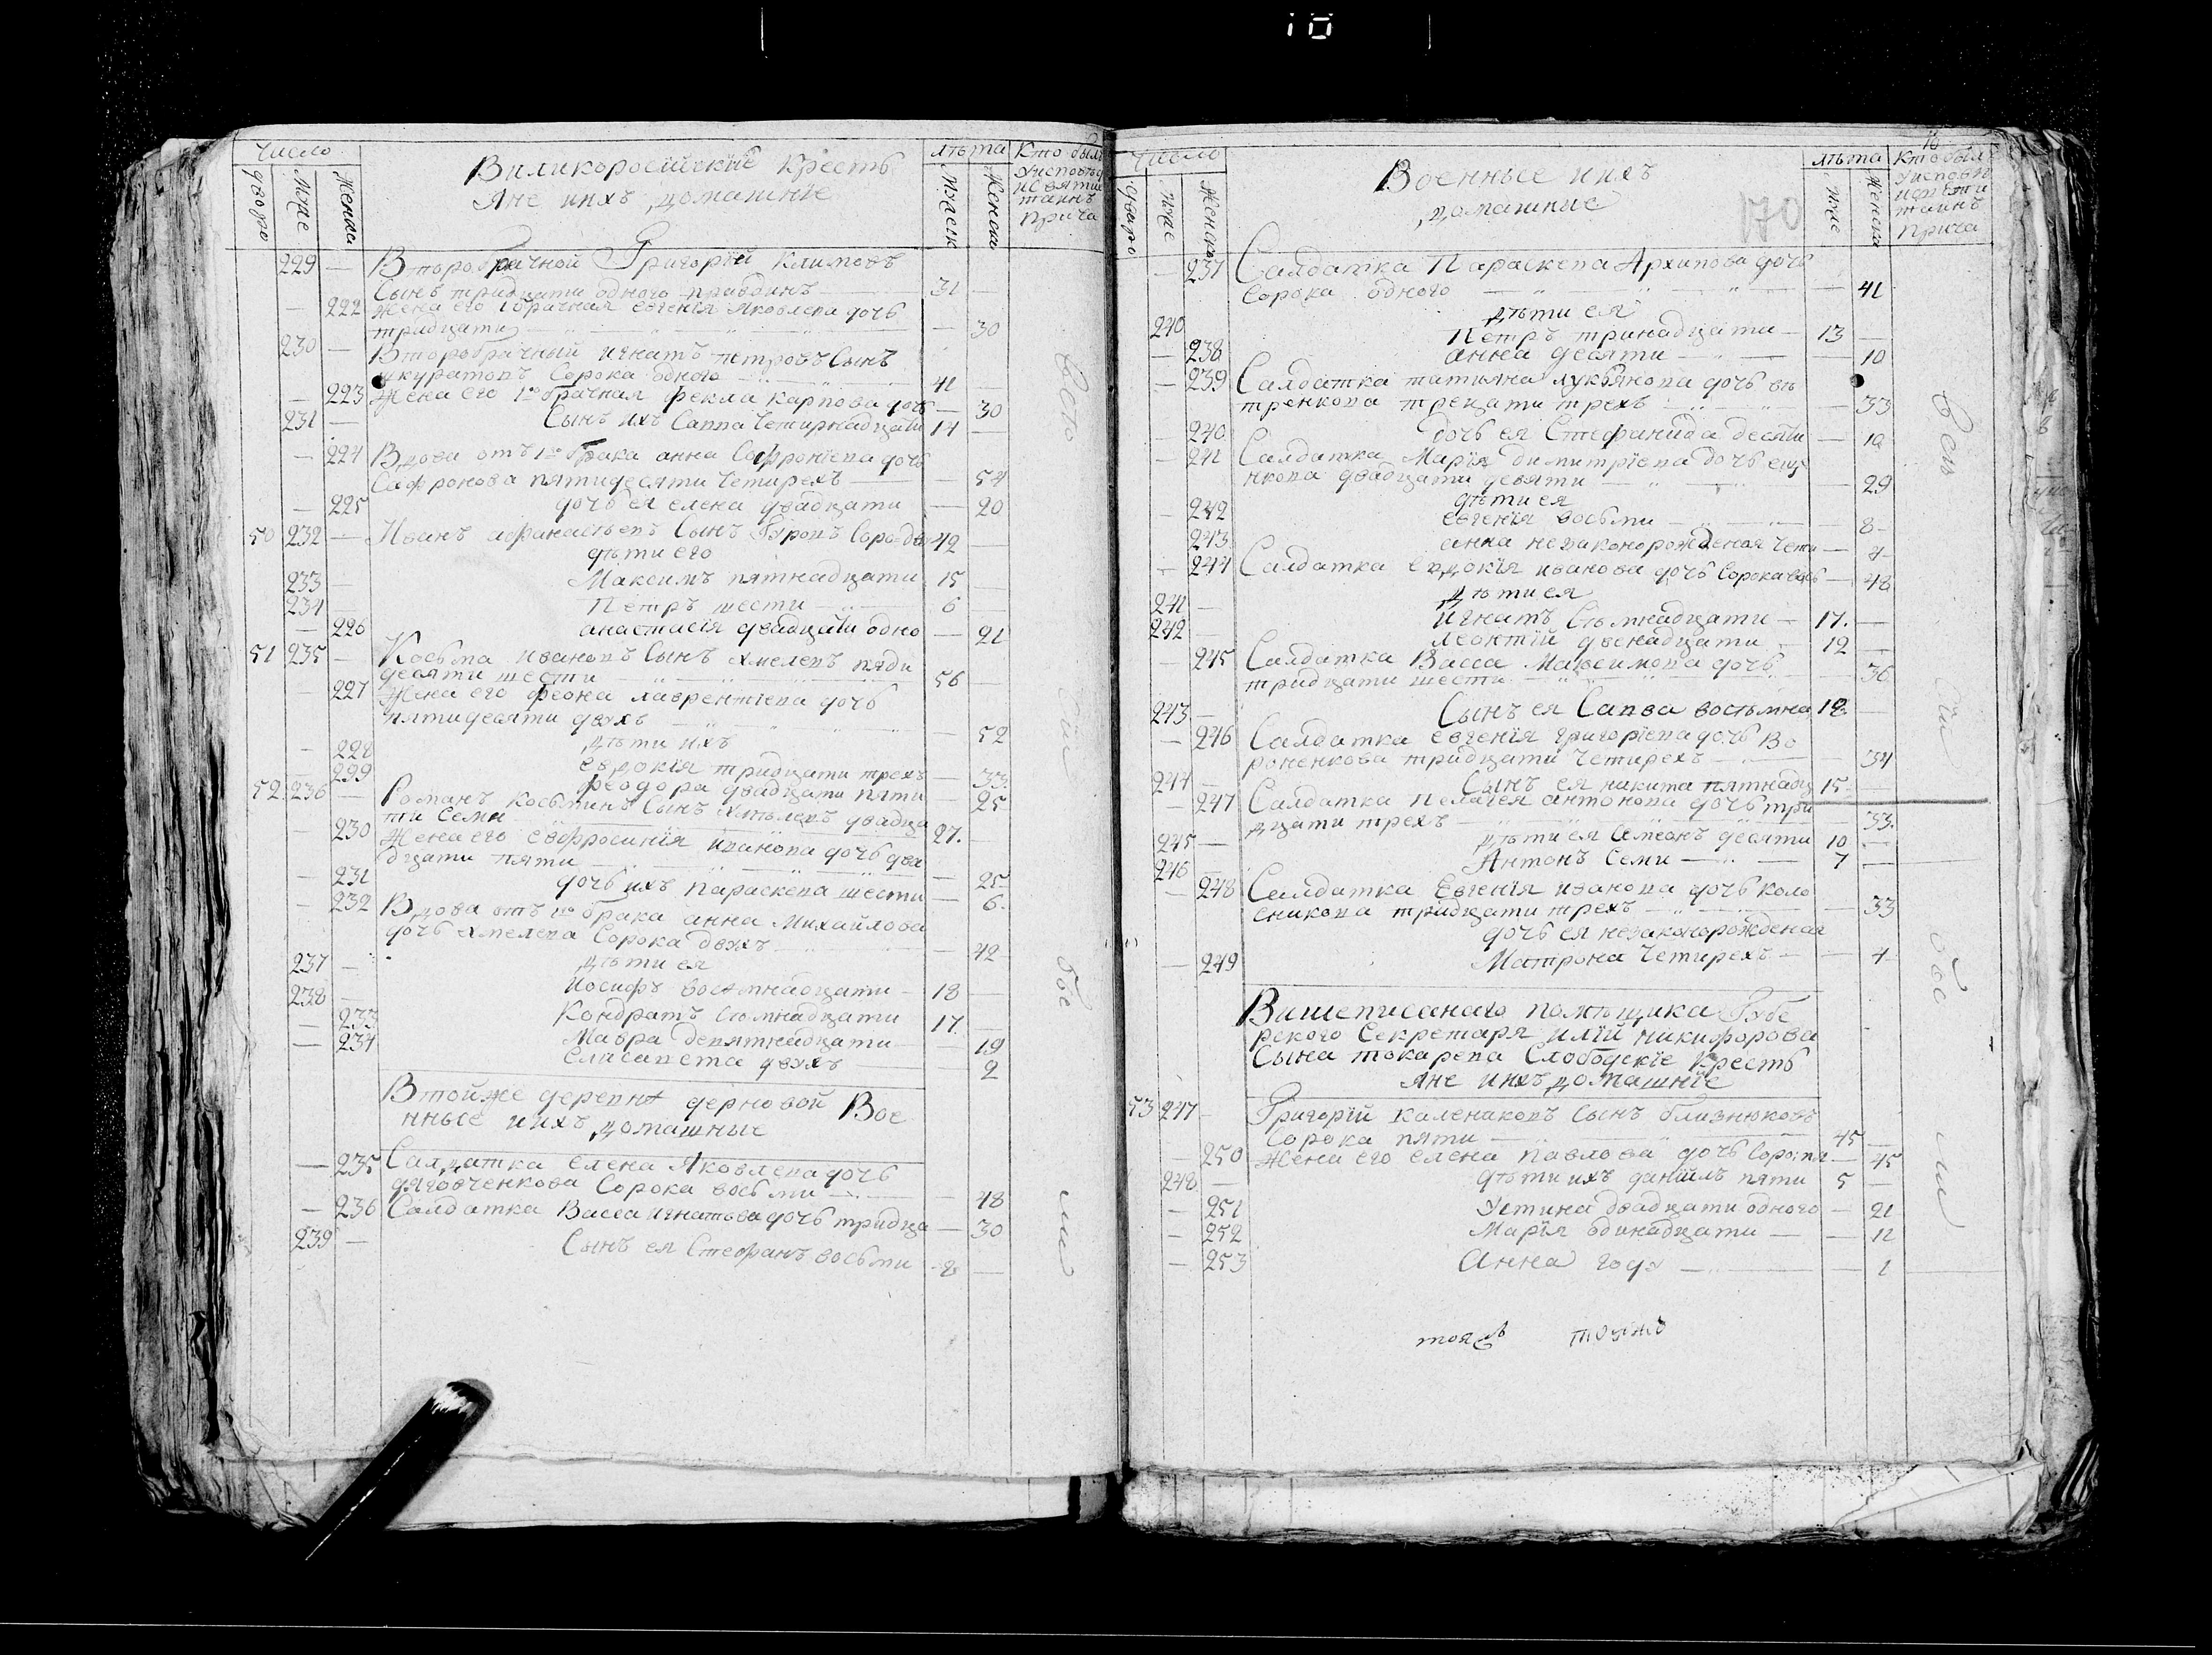 10
Число
двора
Муже
Женска
Виликоросiйскiе кресть
яне ихъ домашнiе
лѣта
Мужск
Женска
Кто былъ
Уисповѣд
исвяти
таинъ
прича
229 — Второбрачной Григорiй Климовъ
Сынъ тридцати одного правдинъ 31 —
— 222 Жена его 1 брачная евгенiя Яковлева дочь
тридцати — 30
230 — Второбрачный игнатъ петровъ Сынъ
шкуратовъ Сорока одного 41 —
— 223 Жена его 1 брачная фекла карпова дочь — 30
231 — Сынъ ихъ Савва Четирнадцати 14 —
— 224 Вдова отъ 1 брака анна Софронiева дочь
Сафронова пятидесяти Четирехъ — 54
— 225 дочь ея елена двадцати — 20
50 232 — Иванъ афанасьевъ Сынъ Соро=дв 42 —
дѣти его
233 — Максимъ пятнадцати 15 —
234 — Петръ шести 6 —
— 226 анастасiя двадцати одно — 21
51 235 — Косьма ивановъ Сынъ хмелевъ пяди
десяти шести 56 —
— 227 Жена его феона лаврентiева дочь
пятидесяти двухъ — 52
дѣти ихъ
— 228 евдокiя тридцати трехъ — 33
— 299 феодора двадцати пяти — 25
52 236 — Романъ косьминъ Сынъ хмѣлевъ двадца
ти Семи 27. —
— 230 Жена его евфросинiя иванова дочь два
дцати пяти — 25
— 231 дочь ихъ параскева шести — 6
— 232 Вдова отъ 1 брака анна Михайлова
дочь хмелева Сорока двухъ — 42
дѣти ея
237 — иосифъ восемнадцати 18 —
238 — Кондратъ Сѣмнадцати 17. —
— 233 Мавра девятнадцати — 19
— 234 Елисавета двухъ — 2
Втойже деревнѣ дерновой Вое
нные иихъ домашные
— 235 Салдатка елена Яковлева дочь
дяговченкова Сорока восьми — 48
— 236 Салдатка Васса игнатьва дочь тридца — 30
239 — Сынъ ея Стефанъ восьми 8 —
всѣ
бы
ли
Число
двара
Муже
Женска
Военные ихъ
домашние
170
лѣта
Муже
Женска
16
Кто былъ
Уисповѣ
таинъ
прича
— 237 Салдатка Параскева Архипова дочь
Сорока одного — 41
дѣти ея
240 Петръ тринадцати — 13 —
— 238 анна десяти — 10
— 239 Салдатка татьяна лукьянова дочь вѣ
тренкова трецати трехъ — 33
— 240 дочь ея Стефанида десяти — 10
— 241 Салдатка Марiя димитрiева дочь ещ
нкова двадцати девяти — 29
дѣти ея
— 242 евгенiя восьми — 8
243 анна незаконорожденая Чети — 4
— 244 Салдатка Евдокiя иванова дочь Сорока вось — 48
дѣти ея
241 — игнатъ Сѣмнадцати — 17. —
242 — леонтiй двенадцати — 12 —
— 245 Салдатка Васса Максимова дочь
тридцати шести — 36
243 — Сынъ ея Савва востьмна 18 —
— 246 Салдатка евгенiя григорiева дочь Во
роненкова тридцати Четирехъ — 34
244 — Сынъ ея никита пятнадц 15 —
— 247 Салдатка пелагея антонова дочь три
дцати трехъ — 33.
245 — дѣти ея Симеонъ десяти 10 —
246 Антонъ Семи — 7 —
— 248 Салдатка Евгенiя иванова дочь коло
сникова тридцати трехъ — 33
дочь ея незаконорожденая
— 249 Матрона Четирехъ — 4
Вишеписанаго помѣщика Губе
рского Секретаря илiй никифорова
Сына токарева Слободскiе кресть
яне ихъ домашнiе
53 247 — Григорiй калениковъ Сынъ близнюковъ
Сорока пяти 45 —
— 250 Жена его елена павлова дочь Соро:пя — 45
248 — дѣти ихъ данiилъ пяти 5 —
— 251 Устина двадцати одного — 21
— 252 Марiя одинадцати — 11
— 253 Анна году — 1
всѣ
бы
ли